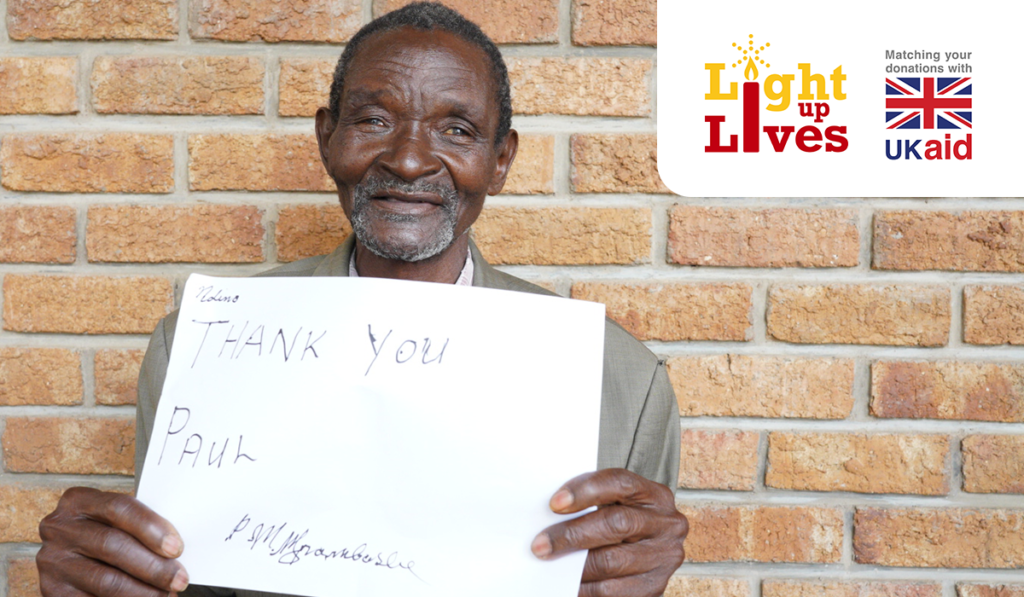 Ndino
THANK YOU
PAUL
Light
up
Lives
Matching your
donations with
UKaid